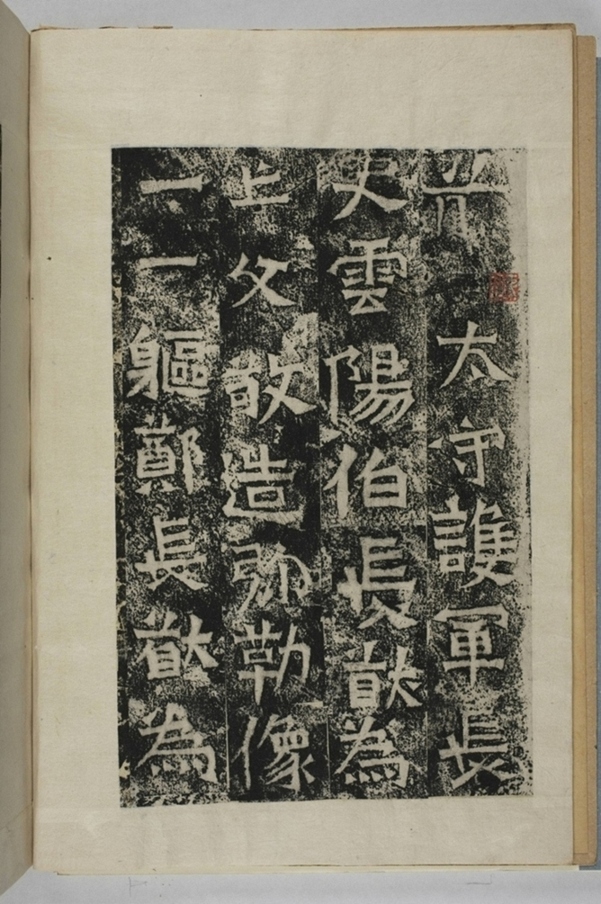 太守護軍長
史雲陽伯長猷為
亡父敬造弥勒像
一一軀鄭長猷為